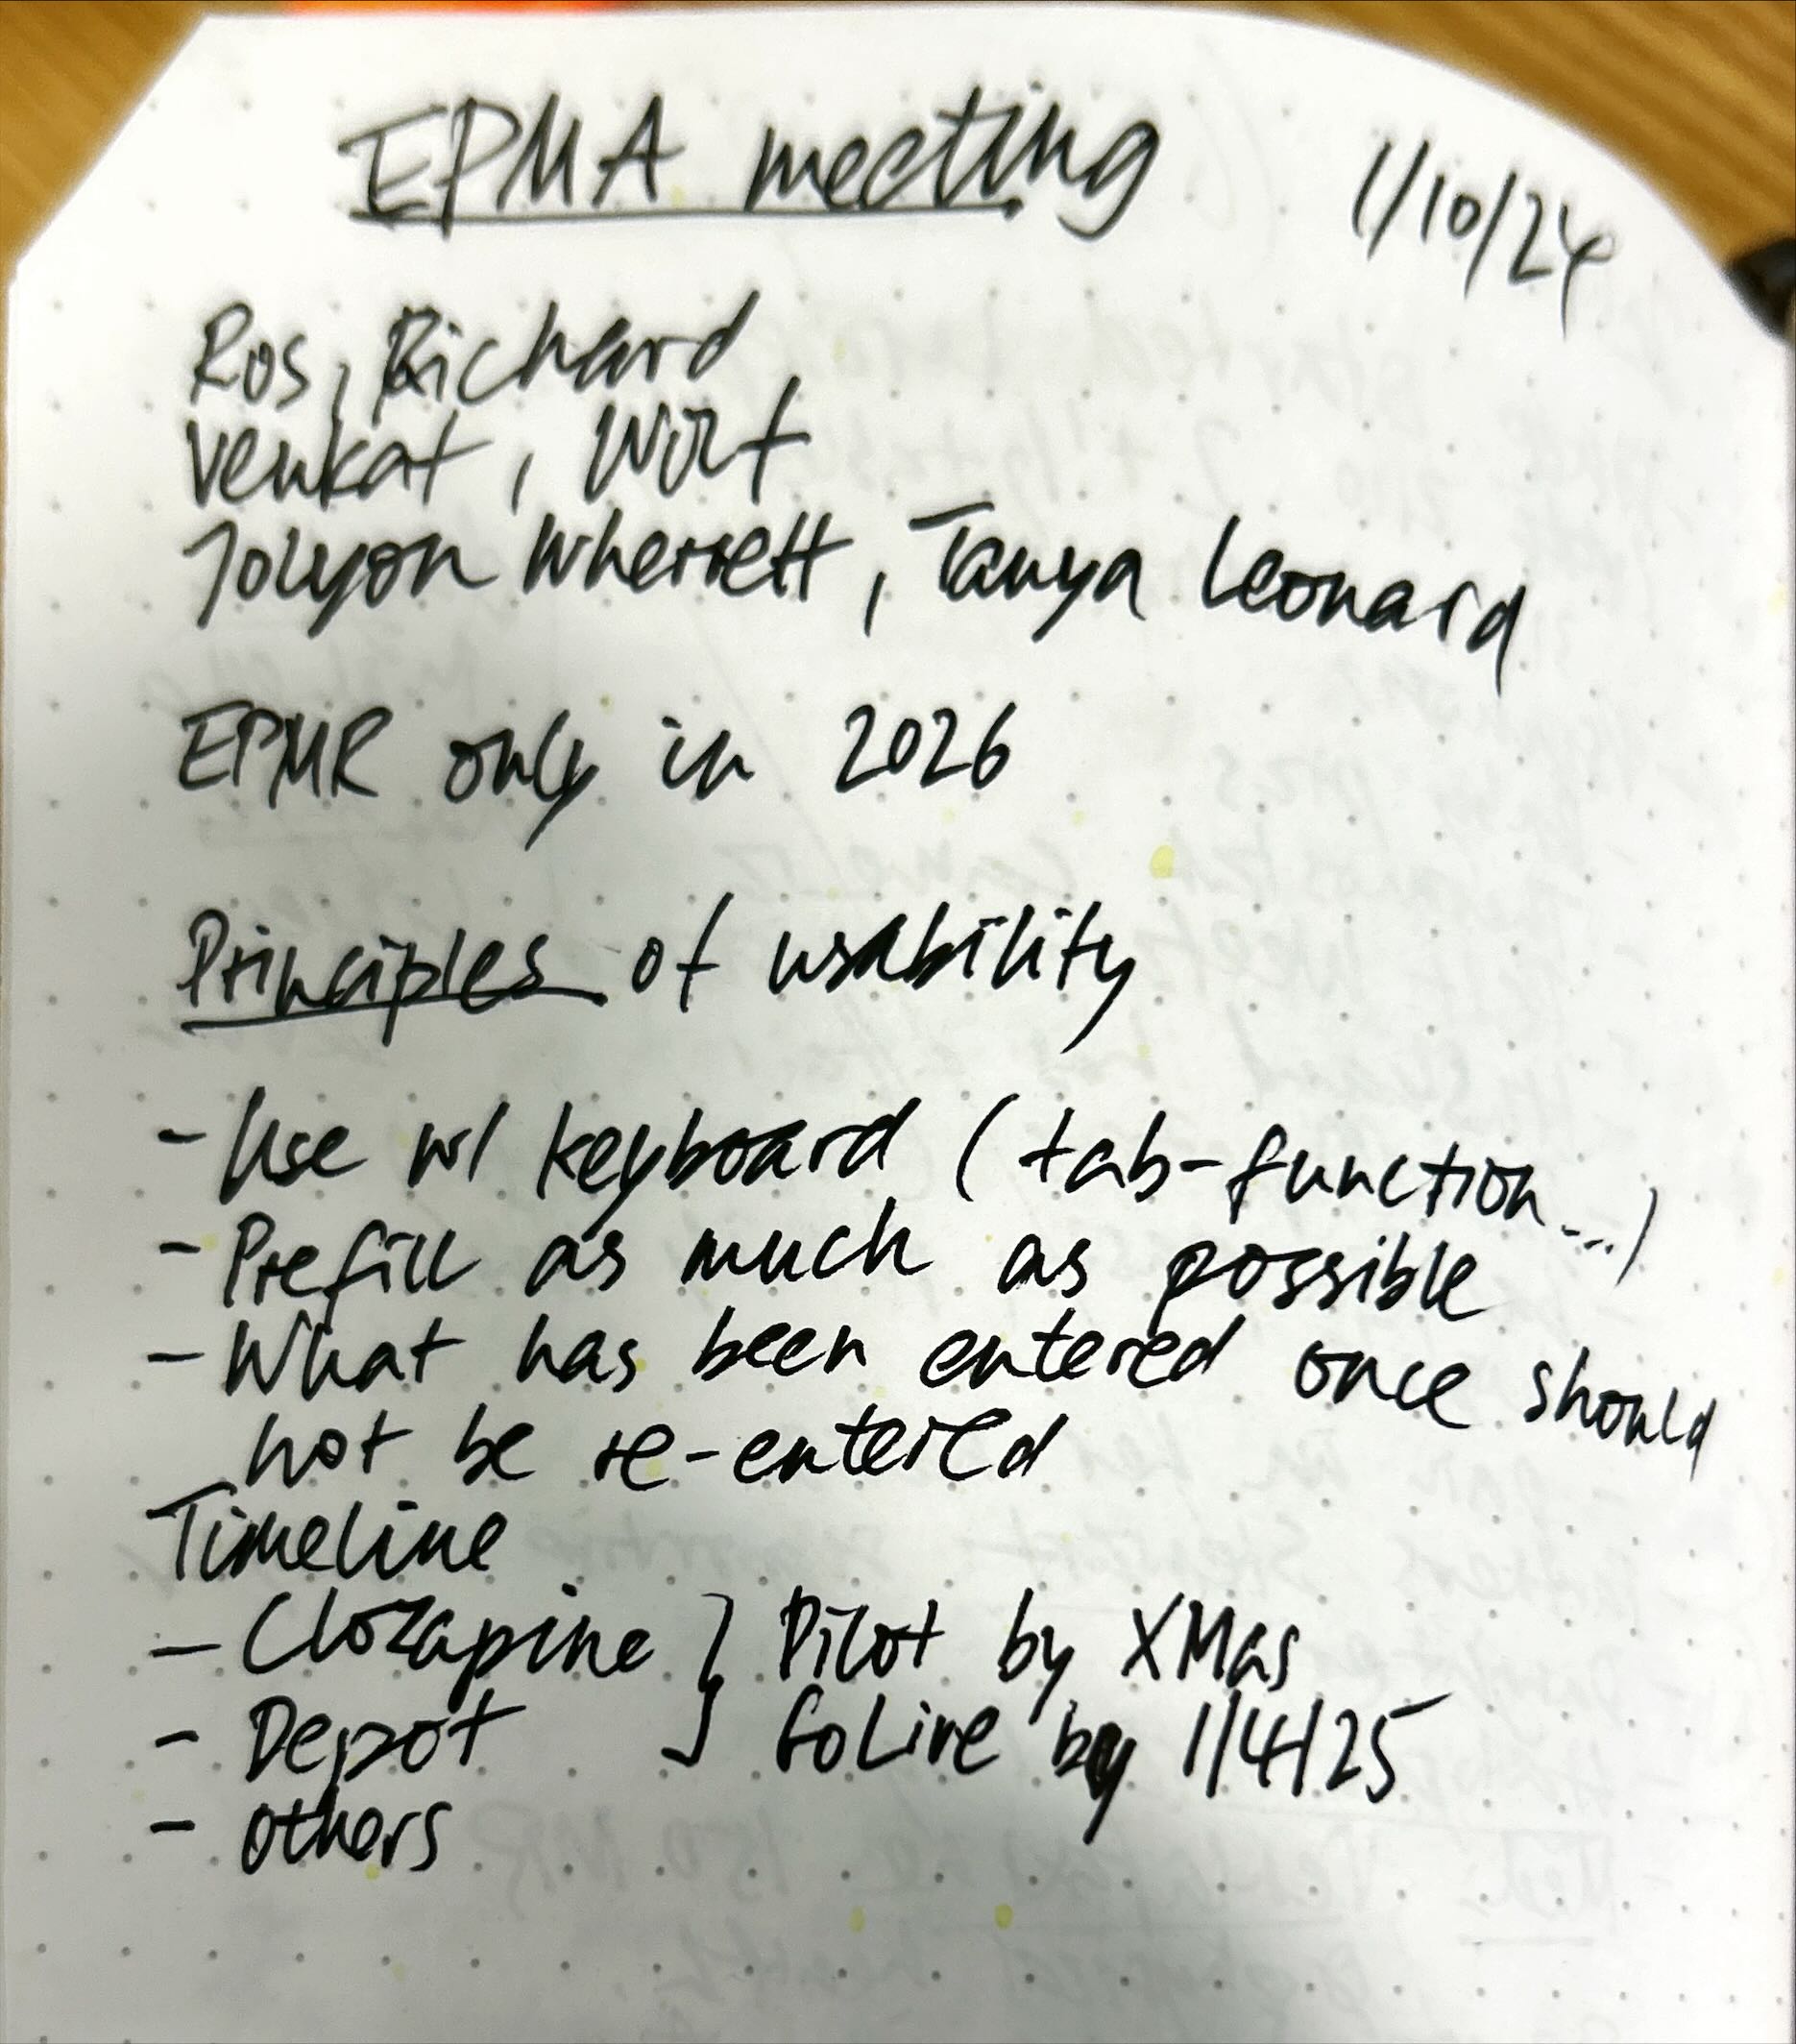 EPMA meeting 1/10/24
Ros, Richard
Venkat, Wolf
Jolyon Wherrett, Tanya Leonard
EPMR only in 2026
Principles of usability
- Use w/ keyboard (tab-function...)
- Prefill as much as possible
- What has been entered once should
not be re-entered
Timeline
- Clozapine } Pilot by XMas
- Depot } GoLive by 1/4/25
- others